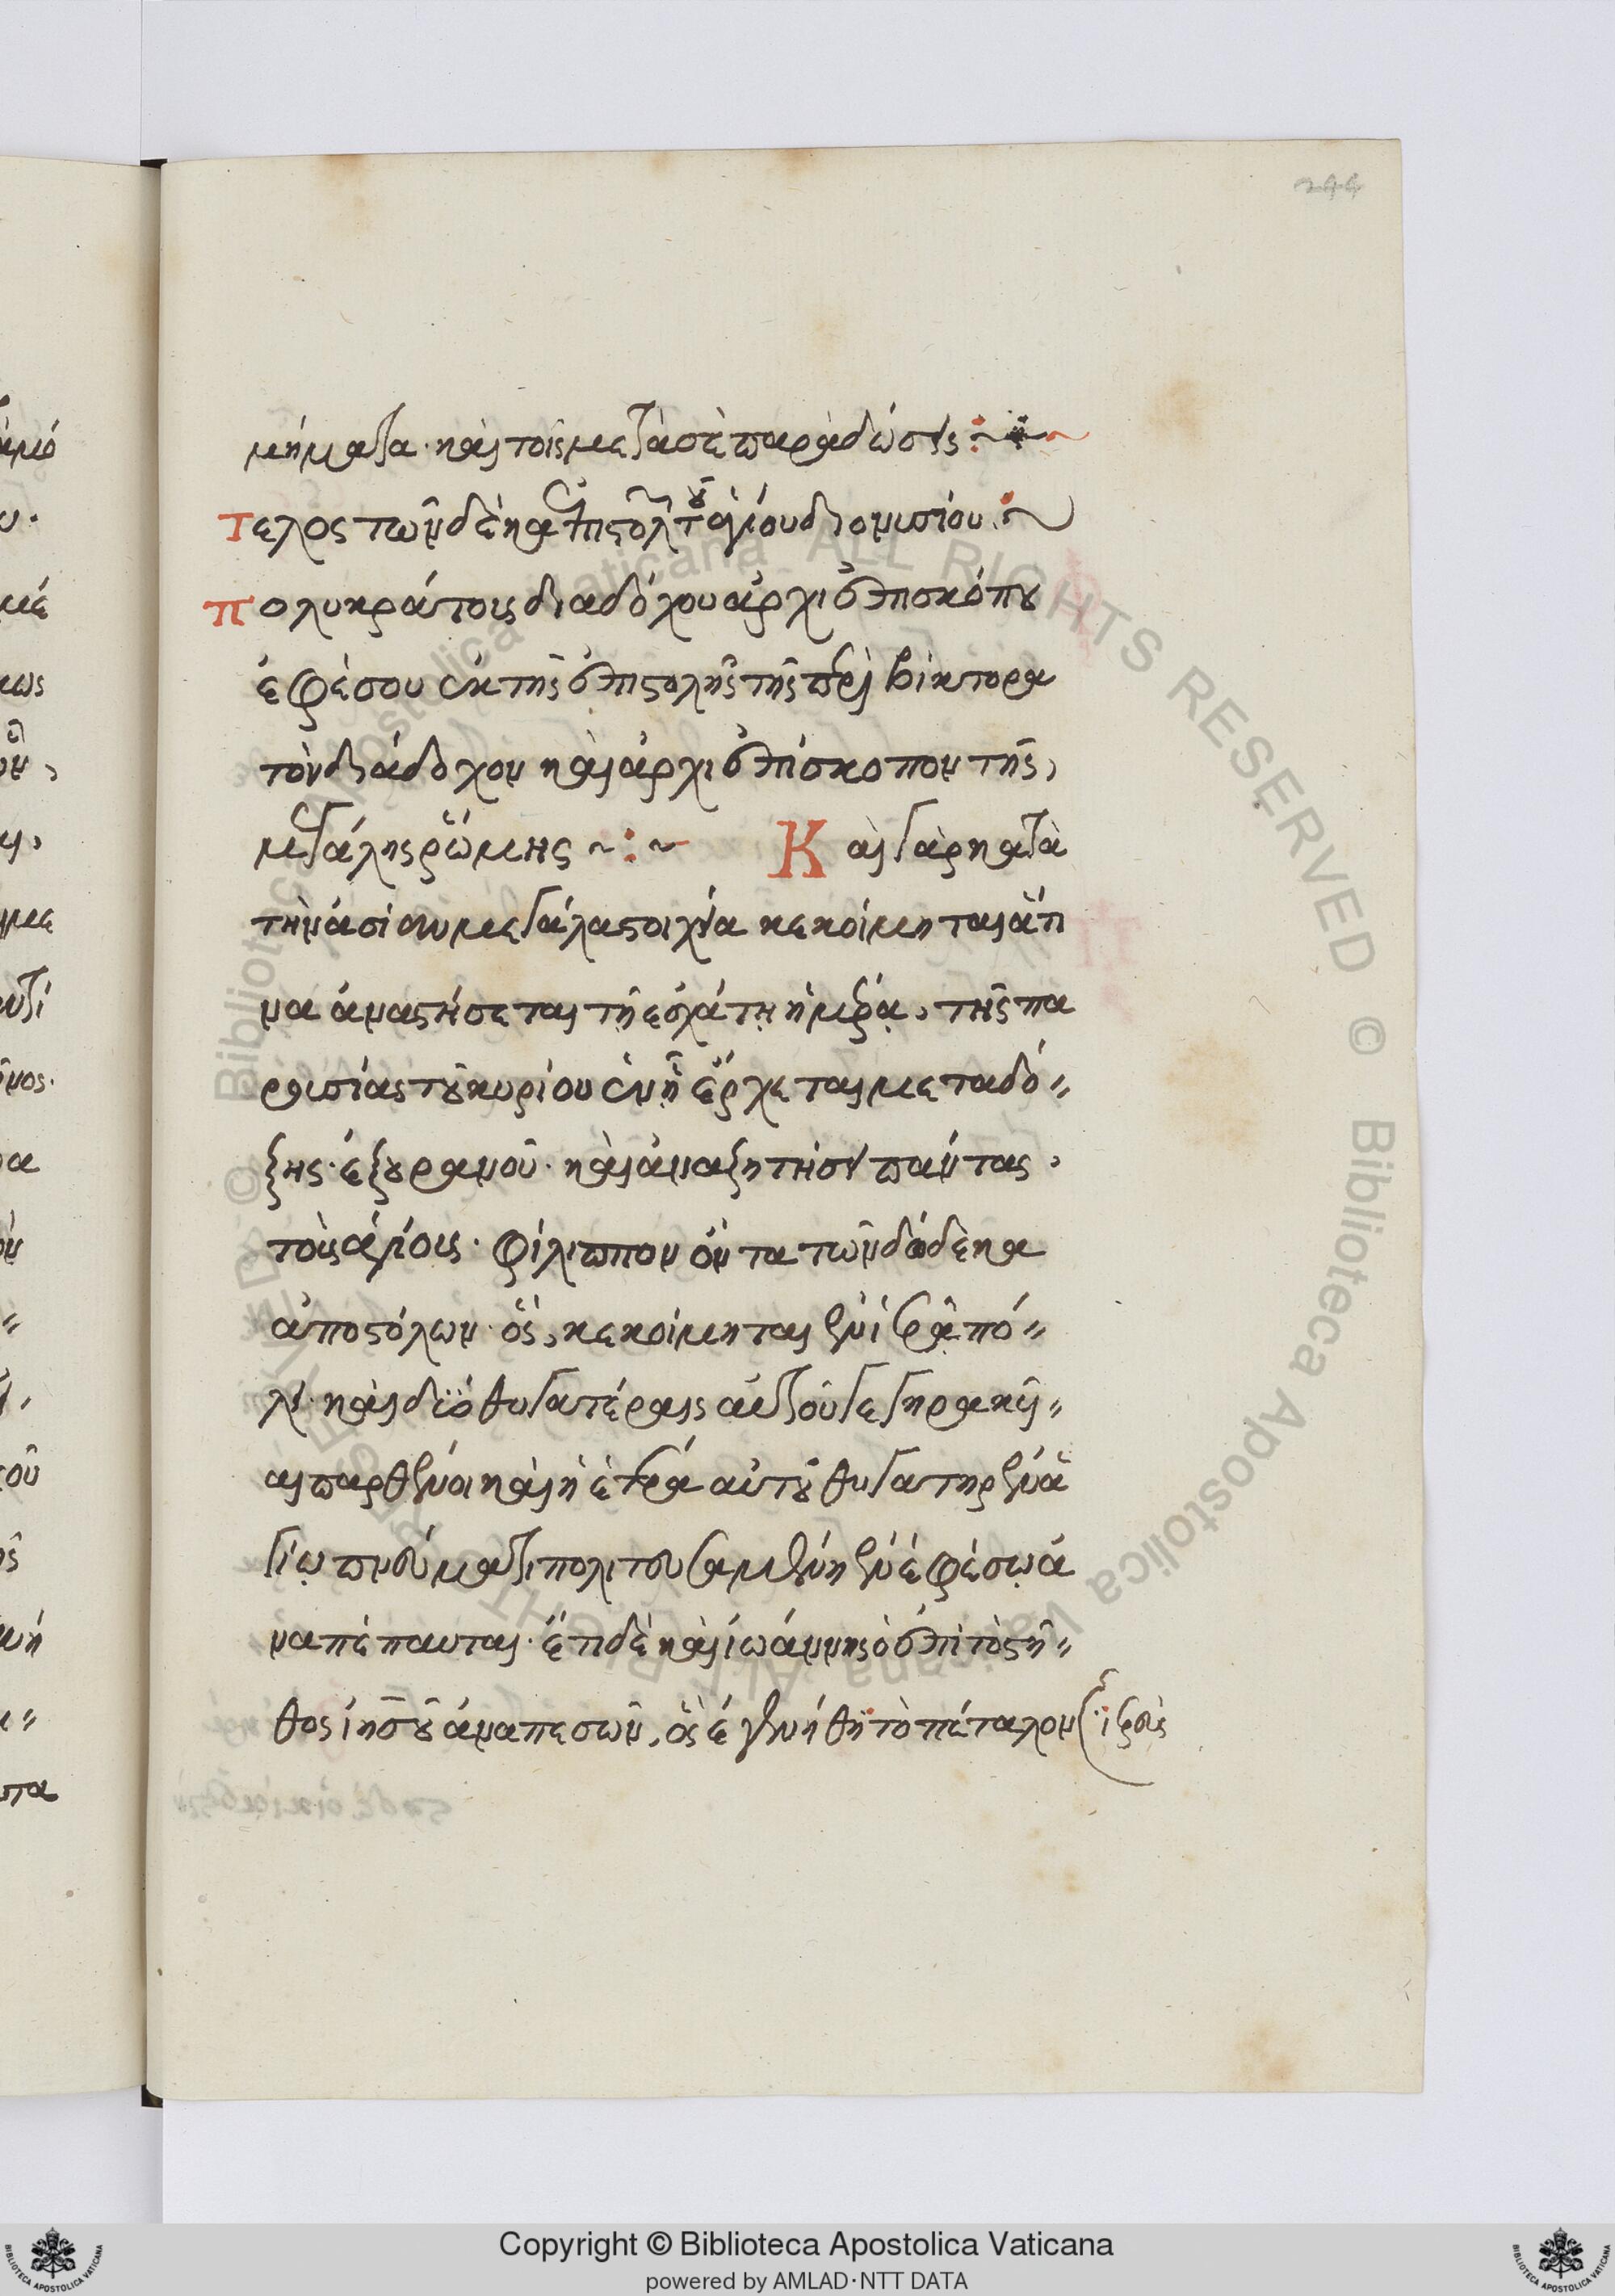 244
μήματα· καὶ τοῖς μετὰ σὲ παραδώσεις :~
Τέλος τῶν δέκα ἐπιστολ τοῦ ἁγίου διονυσίου :~
Πολυκράτους διαδόχου ἀρχιεπισκόπου
ἐφέσου ἐκ τῆς ἐπιστολῆς τῆς πρὸς βίκτορα
τὸν διάδοχον καὶ ἀρχιεπίσκοπον τῆς,
μεγάλης ῥώμης ~:~ Καὶ γὰρ κατὰ
τὴν ἀσίαν μεγάλα στοιχεῖα κεκοίμηται ἅτι
να ἀναστήσεται τῇ ἐσχάτῃ ἡμέρᾳ, τῆς πα
ρουσίας τοῦ κυρίου ἐν ᾗ ἔρχεται μετα δό=
ξης· ἐξ οὐρανοῦ· καὶ ἀναζητήσει πάντας,
τοὺς ἁγίους· φίλιππον ὄντα τῶν δώδεκα
ἀποστόλων· ὅς, κεκοίμηται ἐν ἱεραπό=
λει· καὶ δύο θυγατέραις αὐτοῦ γεγηρακυῖ=
αι παρθένοι καὶ ἡ ἑτέρα αὐτοῦ θυγατηρ ἐν ἁ
γίῳ πνεύματι πολιτευσαμένη ἐν ἐφέσῳ ἀ
ναπέπαυται· ἔτι δὲ καὶ ἰωάννης ὁ ἐπὶ τὸ στῆ=
θος ἰησοῦ ἀναπεσῶν, ὃς ἐγενήθη τὸ πέταλον ἱερεὺς
Copyright © Biblioteca Apostolica Vaticana
powered by AMLAD·NTT DATA